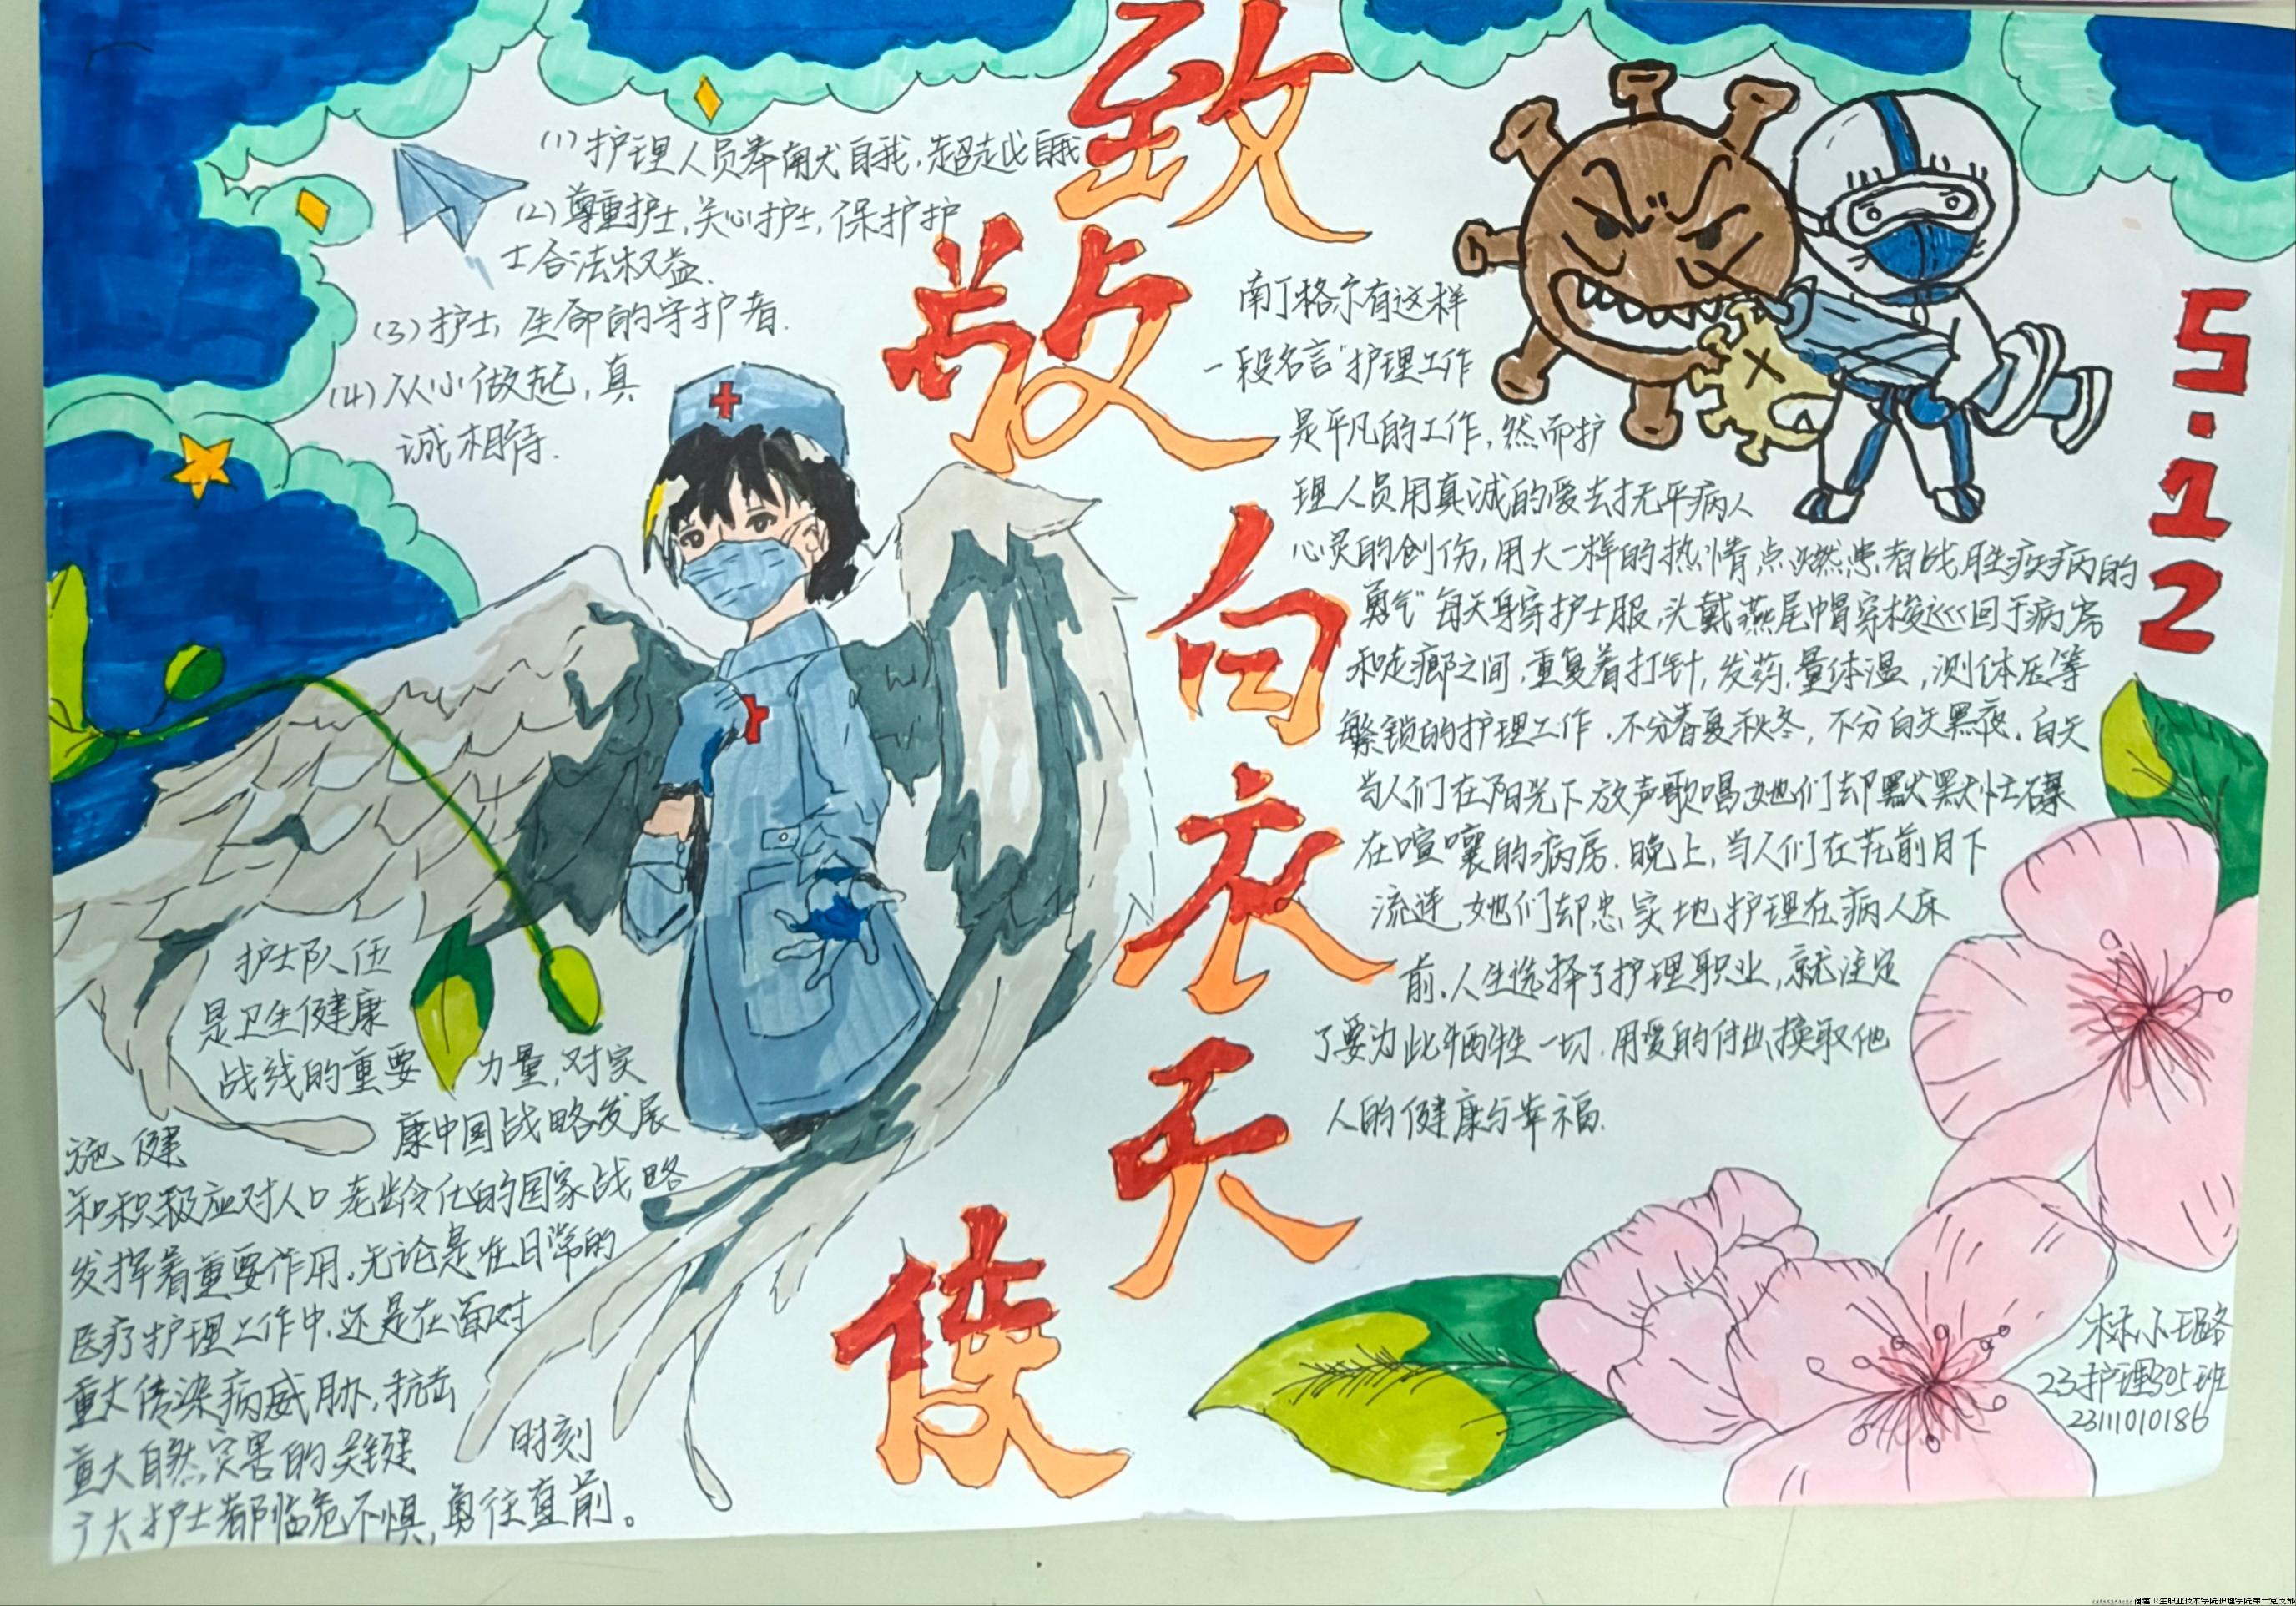 致敬白衣天使
5.12
(1)护理人员奉献自我,超越自我
(2)尊重护士,关心护士,保护护
士合法权益.
(3)护士,生命的守护者.
(4)从心做起,真
诚相待.
南丁格尔有这样
一段名言"护理工作
是平凡的工作,然而护
理人员用真诚的爱去抚平病人
心灵的创伤,用火一样的热情点燃患者战胜疾病的
勇气"每天身穿护士服,头戴燕尾帽穿梭巡回于病房
和走廊之间,重复着打针,发药,量体温,测体压等
繁锁的护理工作.不分春夏秋冬,不分白天黑夜.白天
当人们在阳光下放声歌唱她们却默默忙碌
在喧嚷的病房.晚上,当人们在花前月下
流连,她们却忠实地护理在病人床
前.人生选择了护理职业,就注定
了要为此牺牲一切.用爱的付出换取他
人的健康与幸福.
护士队伍
是卫生健康
战线的重要 力量,对实
施健 康中国战略发展
和积极应对人口老龄化的国家战略
发挥着重要作用.无论是在日常的
医疗护理工作中,还是在面对
重大传染病威胁,抗击
重大自然灾害的关键 时刻
广大护士都临危不惧,勇往直前。
林小璐
23护理305班
23111010186
福建卫生职业技术学院护理学院第一党支部